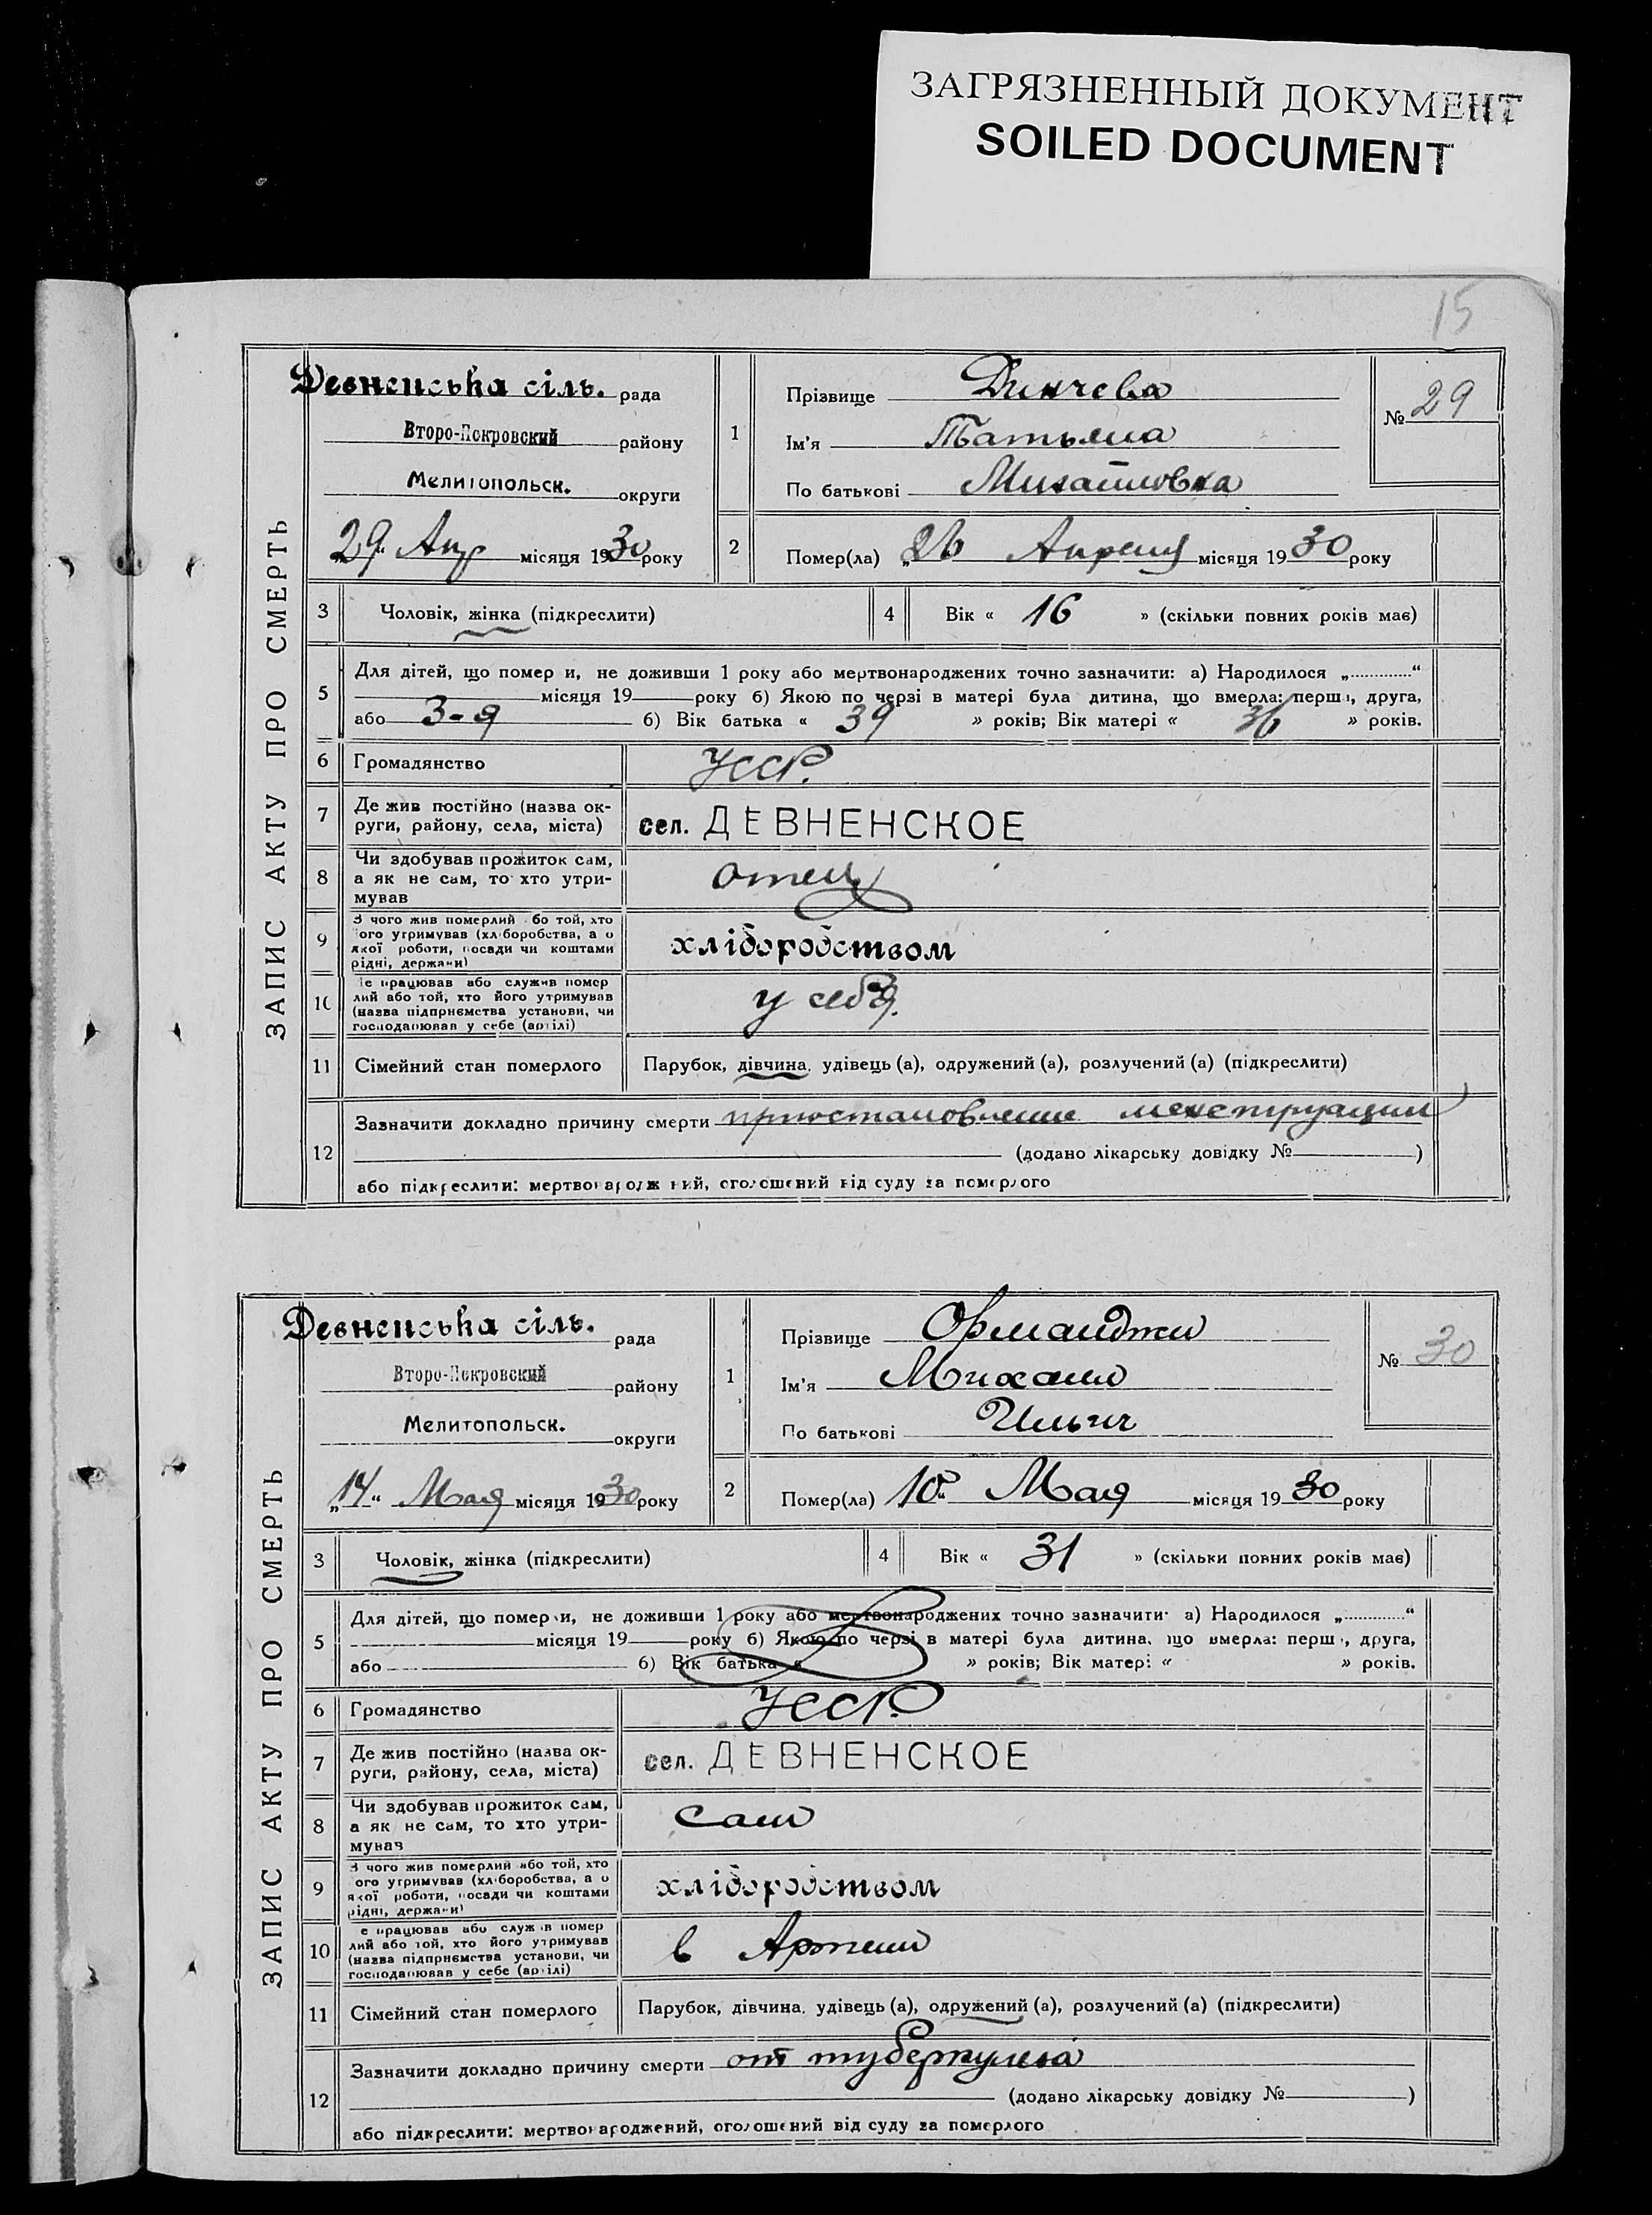 ЗАГРЯЗНЕННЫЙ ДОКУМЕНТ
SOILED DOCUMENT
15
ЗАПИС АКТУ ПРО СМЕРТЬ
Девненська сіль. рада
Второ-Покровский району
Мелитопольск. округи
„29“ Апр місяця 1930 року
1
Прізвище Динчева
Ім'я Татьяна
По батькові Михайловна
№ 29
2
Помер(ла) „26 Апреля місяця 1930 року
3 Чоловік, жінка (підкреслити)
4 Вік « 16 » (скільки повних років має)
5 Для дітей, що помер и, не доживши 1 року або мертвонароджених точно зазначити: а) Народилося „............“
місяця 19 року б) Якою по черзі в матері була дитина, що вмерла: перш , друга,
або 3-я б) Вік батька « 39 » років; Вік матері « 36 » років.
6 Громадянство УССР.
7 Де жив постійно (назва ок-
руги, району, села, міста)
сел. ДЕВНЕНСКОЕ
8 Чи здобував прожиток сам,
а як не сам, то хто утри-
мував
отец
9 З чого жив померлий бо той, хто
ого утримував (хліборобства, а о
якої роботи, посади чи коштами
рідні, держави)
хліборобством
10 е працював або служив помер
лий або той, хто його утримував
(назва підприємства установи, чи
господарював у себе (артілі)
у себя.
11 Сімейний стан померлого Парубок, дівчина, удівець (а), одружений (а), розлучений (а) (підкреслити)
12 Зазначити докладно причину смерти приостановление менструации
(додано лікарську довідку № )
або підкреслити: мертвонародж ний, оголошений від суду за померлого
ЗАПИС АКТУ ПРО СМЕРТЬ
Девненська сіль. рада
Второ-Покровский району
Мелитопольск. округи
„14“ Мая місяця 1930 року
1
Прізвище Орманджи
Ім'я Михаил
По батькові Ильич
№ 30
2
Помер(ла) 10“ Мая місяця 1930 року
3 Чоловік, жінка (підкреслити)
4 Вік « 31 » (скільки повних років має)
5 Для дітей, що помер и, не доживши 1 року або мертвонароджених точно зазначити: а) Народилося „............“
місяця 19 року б) Якою по черзі в матері була дитина, що вмерла: перш , друга,
або б) Вік батька « » років; Вік матері « » років.
6 Громадянство УССР.
7 Де жив постійно (назва ок-
руги, району, села, міста)
сел. ДЕВНЕНСКОЕ
8 Чи здобував прожиток сам,
а як не сам, то хто утри-
мував
сам
9 З чого жив померлий або той, хто
ого утримував (хліборобства, а о
якої роботи, посади чи коштами
рідні, держави)
хліборобством
10 е працював або служ в помер
лий або той, хто його утримував
(назва підприємства установи, чи
господарював у себе (артілі)
в Артели
11 Сімейний стан померлого Парубок, дівчина, удівець (а), одружений (а), розлучений (а) (підкреслити)
12 Зазначити докладно причину смерти от туберкулеза
(додано лікарську довідку № )
або підкреслити: мертвонароджений, оголошений від суду за померлого